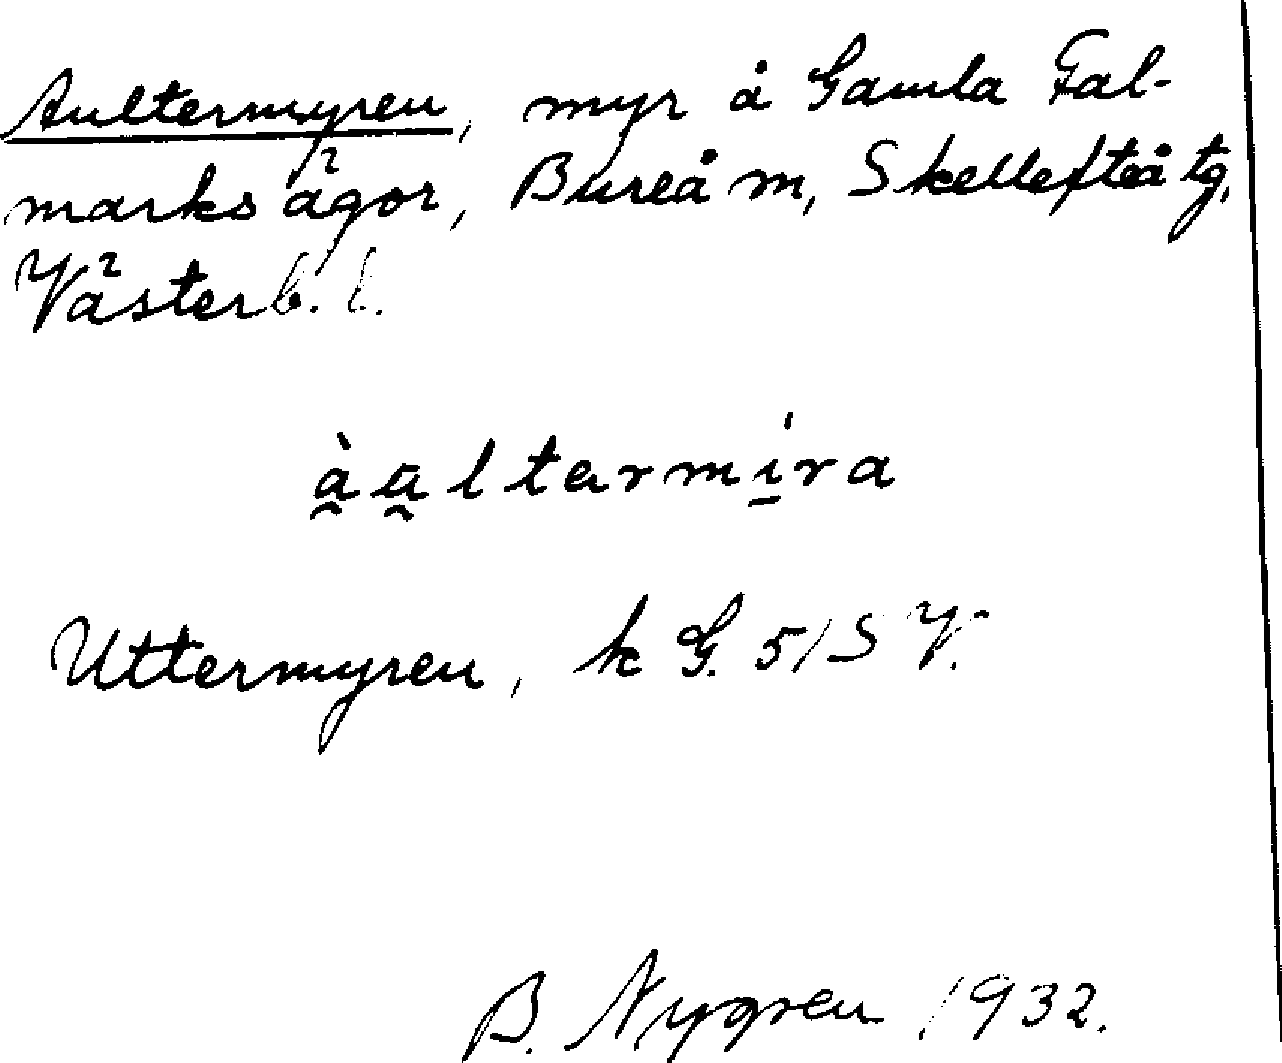 Aultermyren, myr å Gamla Fal-
marks ägor, Bureå m, Skellefteå tg,
Västerb. l.
àu̯ltarmi̠ra
Uttermyren, k G. 51 S V.
B. Nygren 1932.